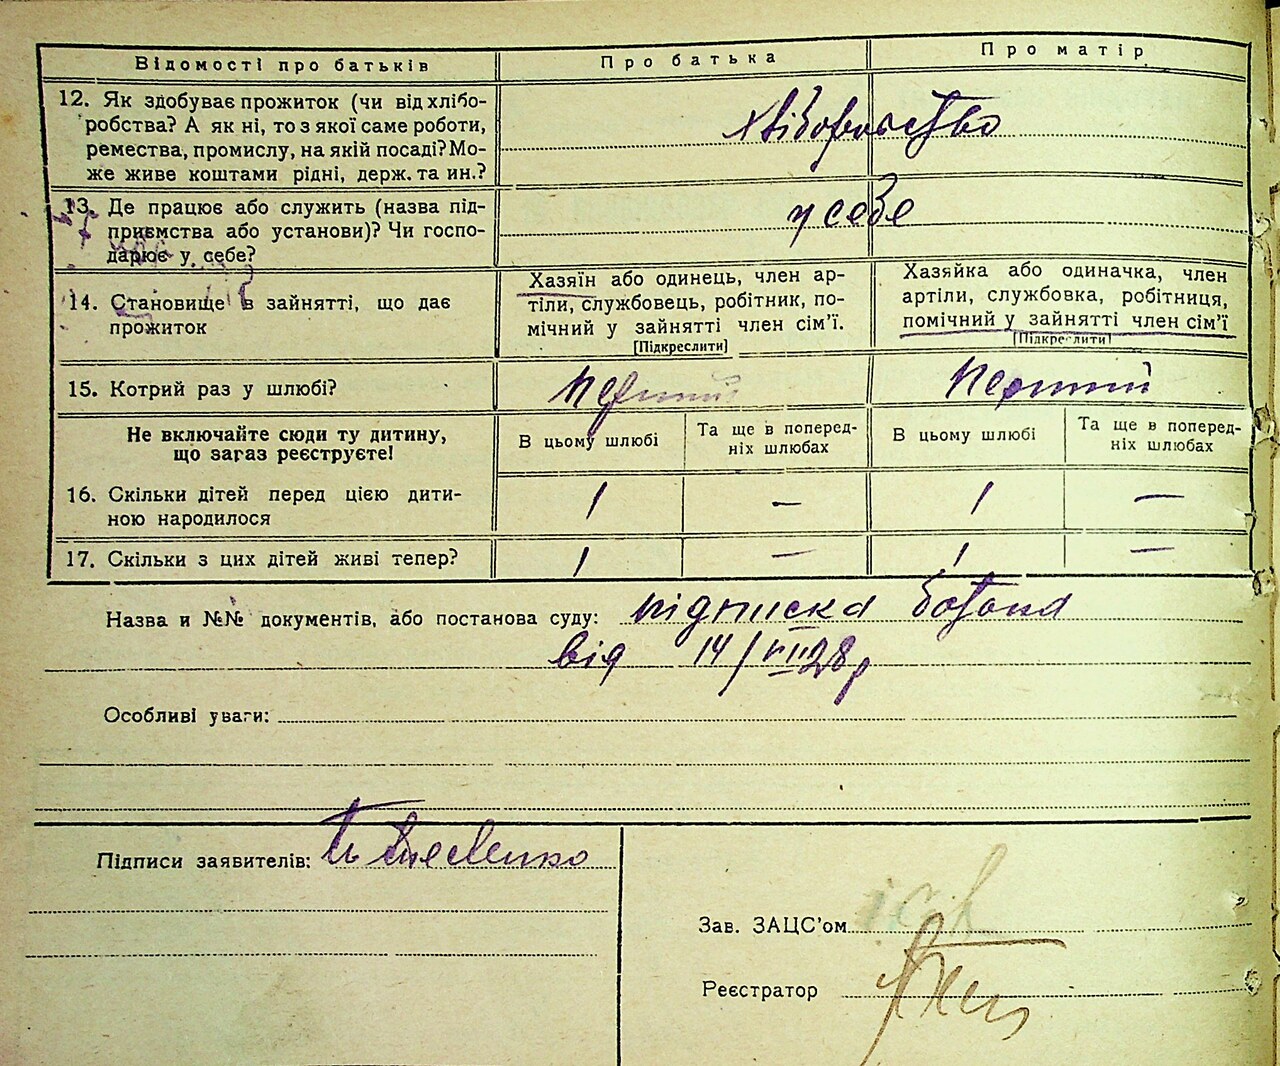 Відомості про батьків
Про батька
Про матір
12. Як здобуває прожиток (чи від хлібо-
робства? А як ні, то з якої саме роботи,
ремества, промислу, на якій посаді? Мо-
же живе коштами рідні, держ. та ин.?
хліборобство
13. Де працює або служить (назва під-
приємства або установи)? Чи госпо-
дарює у себе?
у себе
14. Становище в зайнятті, що дає
прожиток
Хазяїн або одинець, член ар-
тіли, службовець, робітник, по-
мічний у зайнятті член сім'ї.
[Підкреслити]
Хазяйка або одиначка, член
артіли, службовка, робітниця,
помічний у зайнятті член сім'ї
[Підкреслити]
15. Котрий раз у шлюбі?
перший
перший
Не включайте сюди ту дитину,
що загаз реєструєте!
В цьому шлюбі
Та ще в поперед-
ніх шлюбах
В цьому шлюбі
Та ще в поперед-
ніх шлюбах
16. Скільки дітей перед цією дити-
ною народилося
1
—
1
—
17. Скільки з цих дітей живі тепер?
1
—
1
—
Назва и №№ документів, або постанова суду: підписка батька
від 14/VIII 28р
Особливі уваги:
Підписи заявителів:
Зав. ЗАЦС'ом
Реєстратор